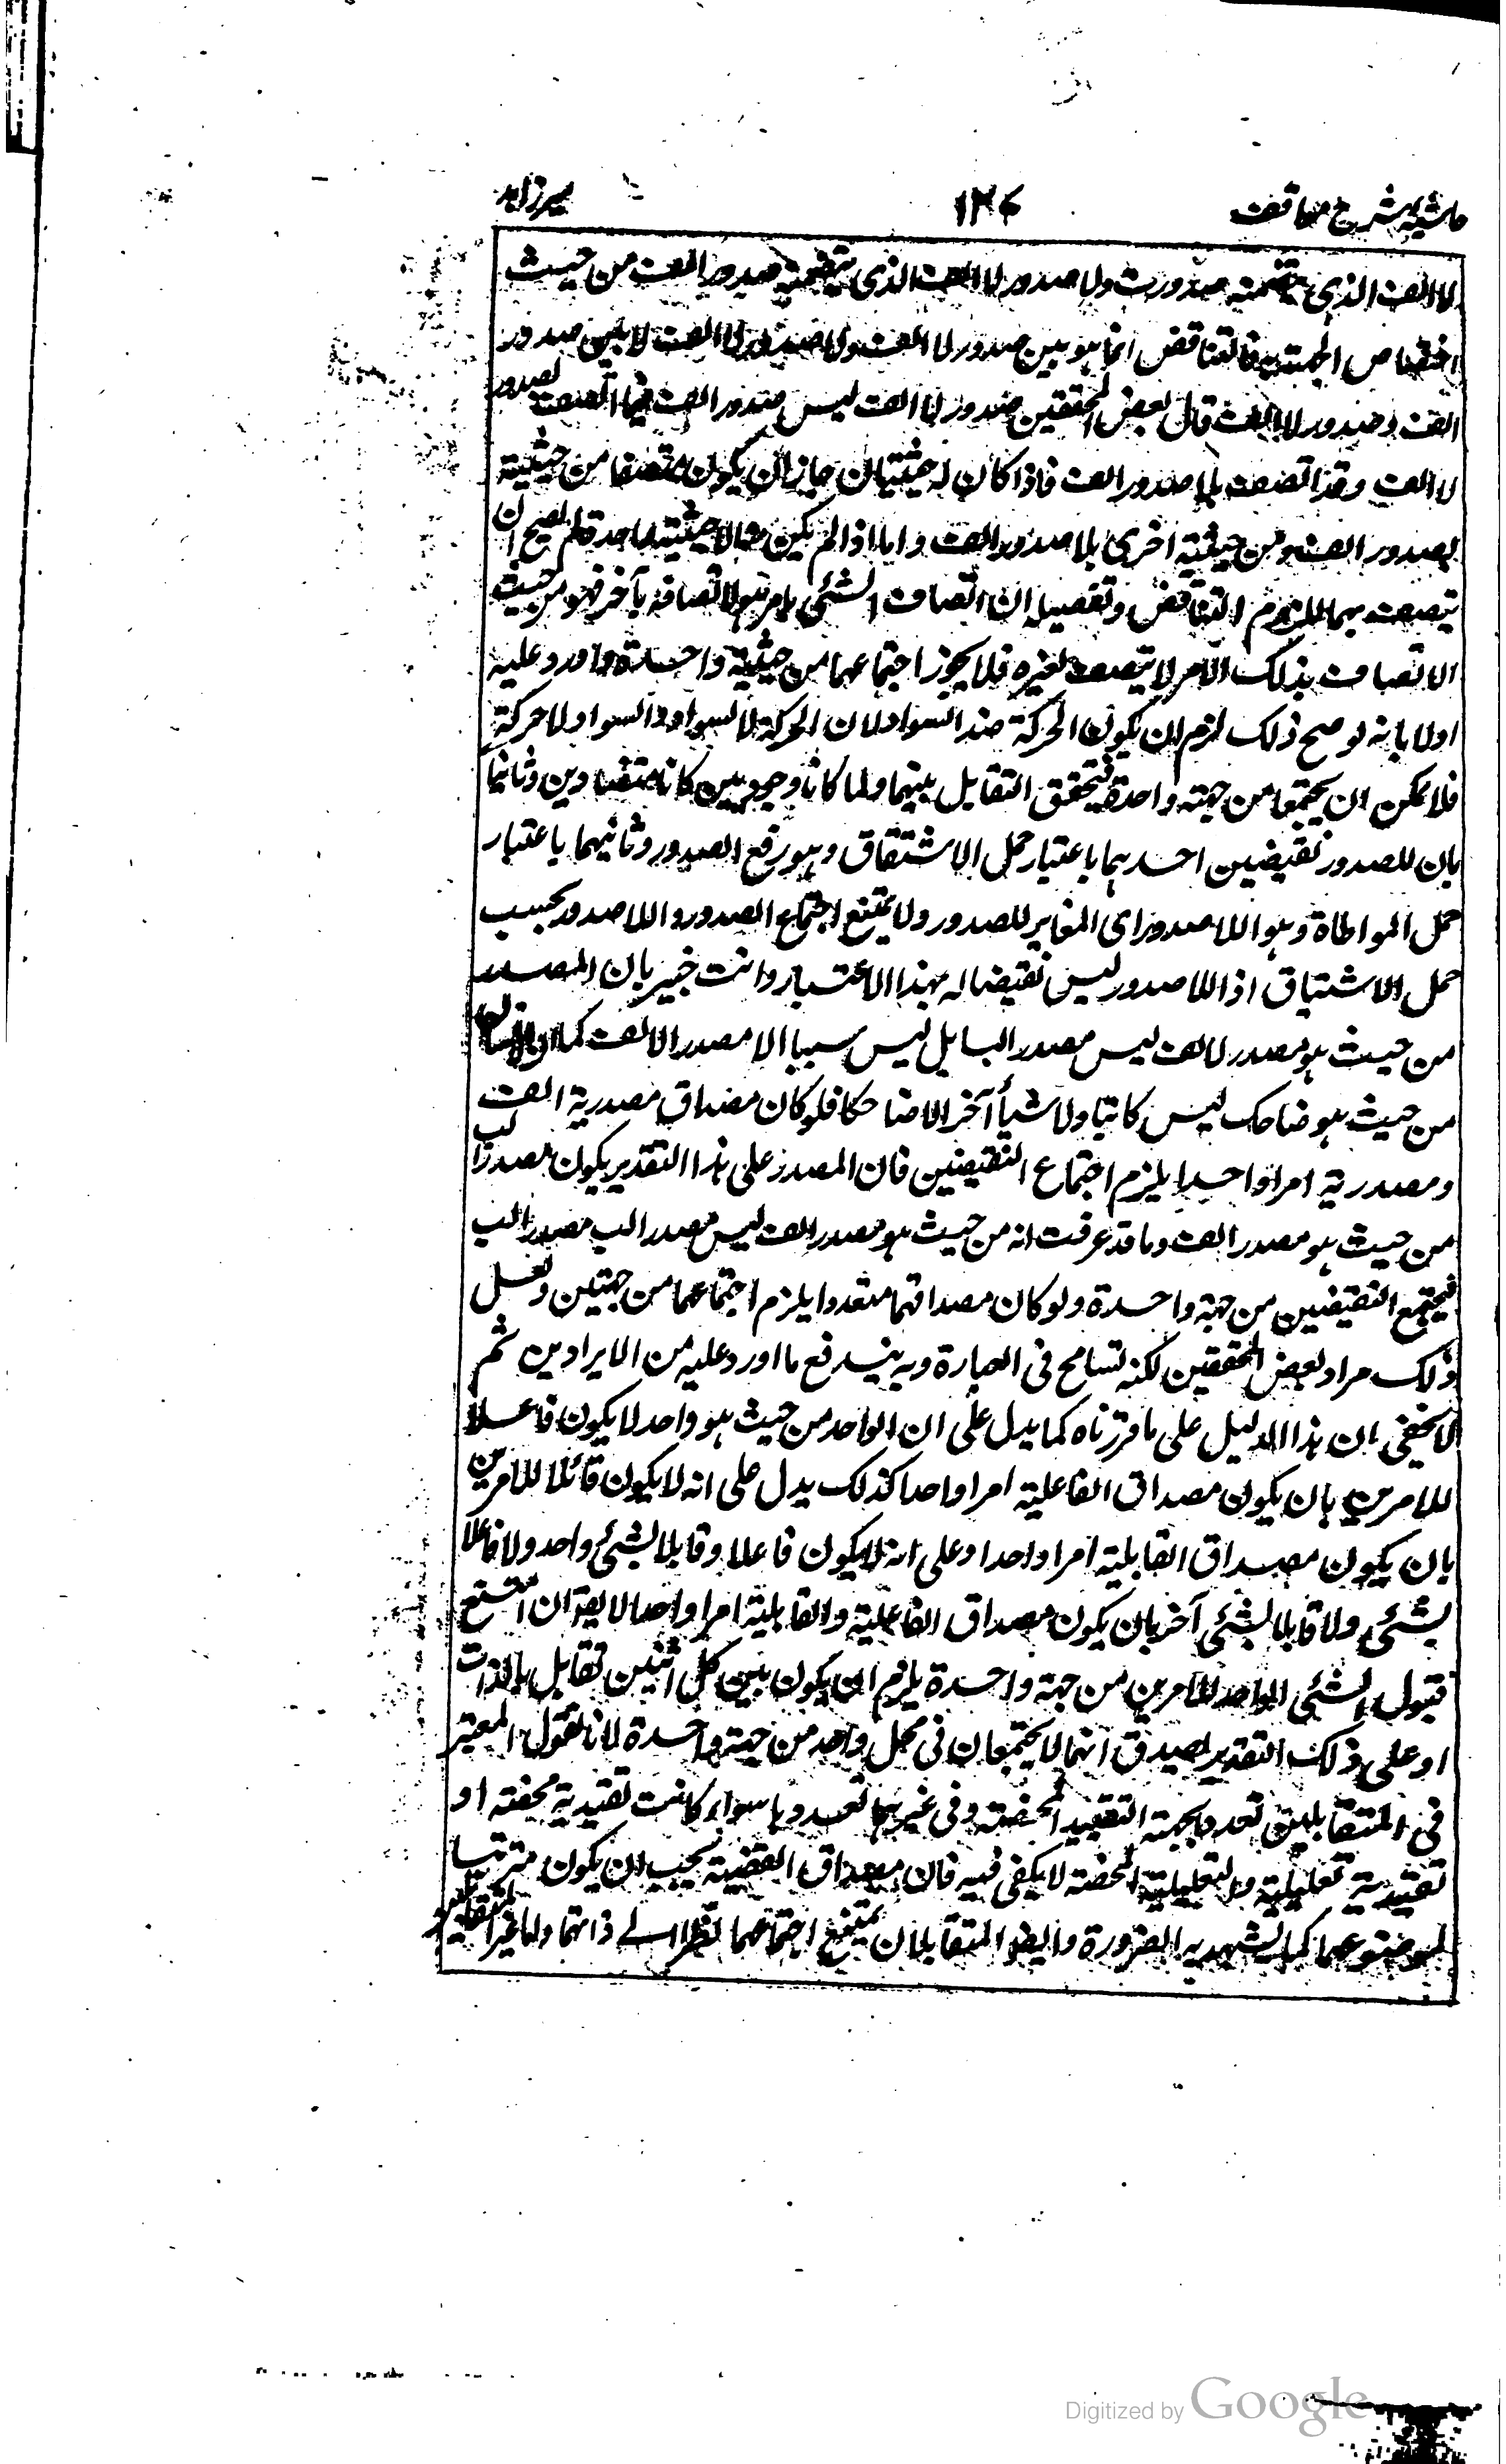 حاشیه شرح مواقف ۱۲۶ میرزاہد
لا الف الذی یتضمنه صدورت ولا صدور لا الف الذی یتضمنه صدور الف من حیث
اختصاص الجهة به فالتناقض انما ہو بین صدور لا الف ولا صدور لا الف لا بین صدور
الف وصدور لا الف قال بعض المحققین صدور لا الف لیس صدور الف فما اتصف لصدور
لا الف وقد اتصف بلا صدور الف فاذا کان له حیثیتان جاز ان یکون متصفا من حیثیة
بصدور الف ومن حیثیة اخری بلا صدور الف واما اذا لم یکن هنالا حیثیة واحدة لم یصح ان
یتصف بهما للزوم التناقض وتفصیله ان اتصاف الشئی بامر ہو لا اتصافه بآخر فهو من حیث
الاتصاف بذلک الامر لا یتصف لغیره فلا یجوز اجتماعهما من حیثیة واحدة واورد علیه
اولا بانه لو صح ذلک لزم ان یکون الحرکة ضد السواد لان الحرکة لا سواد والسواد لا حرکة
فلا یمکن ان یجتمعا من جهة واحدة فیتحقق التقابل بینهما ولما کانا وجودیین کانا متضادین وثانیا
بان للصدور نقیضین احدہما باعتبار حمل الاشتقاق وہو رفع الصدور وثانیهما باعتبار
حمل المواطاة وہو اللا صدور ای المغایر للصدور ولا یمتنع اجتماع الصدور واللا صدور بحسب
حمل الاشتقاق اذ اللا صدور لیس نقیضا له بهذا الاعتبار وانت خبیر بان المصدر
من حیث ہو مصدر لالف لیس مصدر الب بل لیس سببا الا مصدر الالف کما ان الانسان
من حیث ہو ضاحک لیس کاتبا ولا شیأ آخر الا ضاحکا فلو کان مصداق مصدریة الف
ومصدریة ب امرا واحدا یلزم اجتماع النقیضین فان المصدر علی ہذا التقدیر یکون مصدرا لب
من حیث ہو مصدر الف وما قد عرفت انه من حیث ہو مصدر الف لیس مصدر الب مصدر الب
فیجتمع النقیضین من جهة واحدة ولو کان مصداقهما متعددا یلزم اجتماعهما من جهتین ولعل
ذلک مراد بعض المحققین لکنه تسامح فی العبارة وبه یندفع ما اورد علیه من الایرادین ثم
لا یخفی ان ہذا الدلیل علی ما قررناه کما یدل علی ان الواحد من حیث ہو واحد لا یکون فاعلا
للامرین بان یکون مصداق الفاعلیة امرا واحدا کذلک یدل علی انه لا یکون قابلا للامرین
بان یکون مصداق القابلیة امرا واحدا وعلی انه لا یکون فاعلا وقابلا لشئی واحد ولا فاعلا
لشئی ولا قابلا لشئی آخر بان یکون مصداق الفاعلیة والقابلیة امرا واحدا لا یقال ان امتنع
قبول الشئی الواحد للامرین من جهة واحدة یلزم ان یکون بین کل اثنین تقابل بالذات
او علی ذلک التقدیر یصدق انهما لا یجتمعان فی محل واحد من جهة واحدة لانا نقول المعتبر
فی المتقابلین تعدد الجهة التقییدیة المحضة وفی غیرہما تعددہا سواء کانت تقییدیة محضة او
تقییدیة تعلیلیة والتعلیلیة المحضة لا یکفی فیه فان مصداق القضیة یجب ان یکون مترتبا
لموضوعها کما یشهد به الضرورة وایضا المتقابلان یمتنع اجتماعهما نظرا الی ذاتهما واما غیر المتقابلین
Digitized by Google